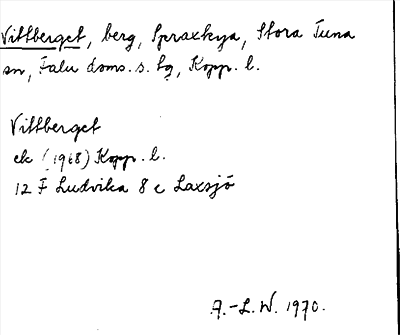 Vittberget, berg, Spraxkya, Stora Tuna
sn, Falu doms. s. tg, Kopp. l.
Vittberget
ek (1968) Kopp. l.
12 F Ludvika 8 c Laxsjö
A.-L. W. 1970.